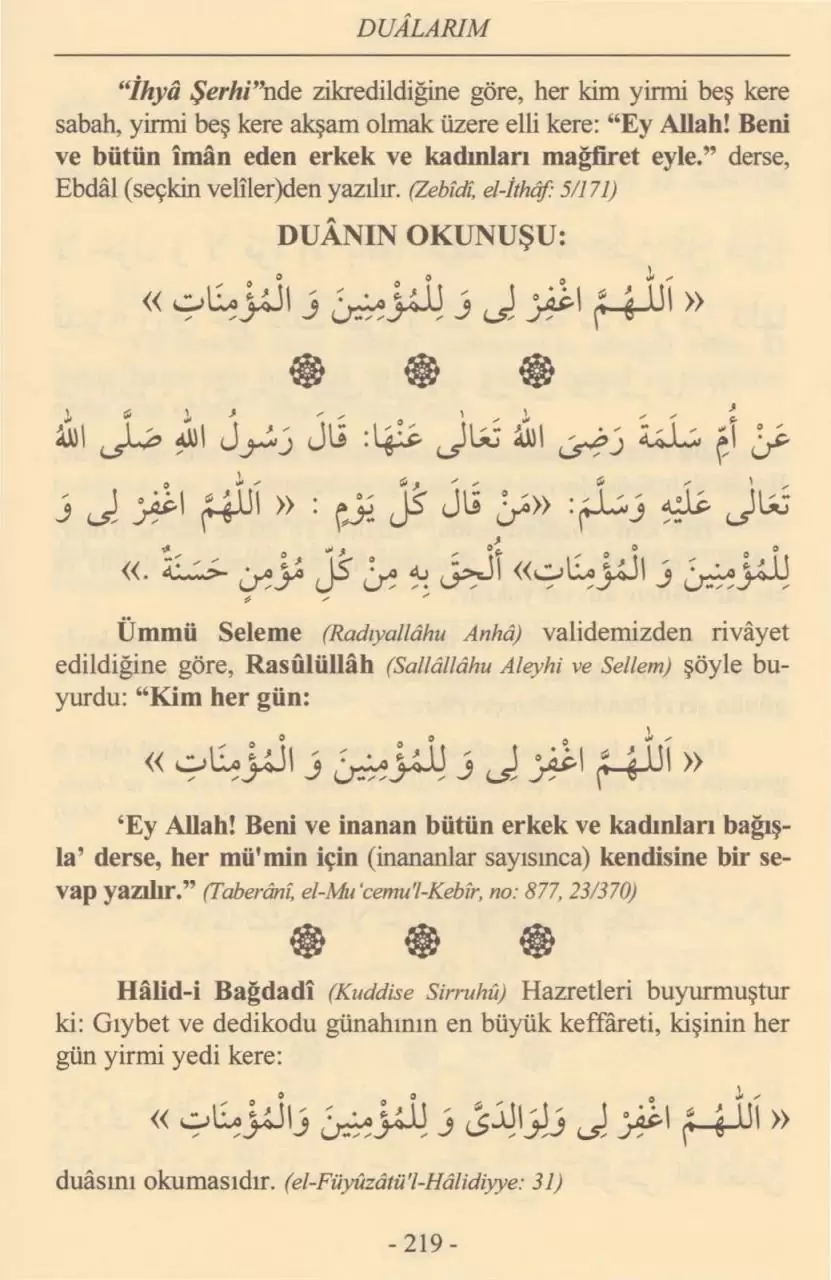 DUÂLARIM
“İhyâ Şerhi”nde zikredildiğine göre, her kim yirmi beş kere
sabah, yirmi beş kere akşam olmak üzere elli kere: “Ey Allah! Beni
ve bütün îmân eden erkek ve kadınları mağfiret eyle.” derse,
Ebdâl (seçkin velîler)den yazılır. (Zebîdî, el-İthâf: 5/171)
DUÂNIN OKUNUŞU:
« اَللّٰهُمَّ اغْفِرْ لِى وَ لِلْمُؤْمِنِينَ وَ الْمُؤْمِنَاتِ »
عَنْ أُمِّ سَلَمَةَ رَضِىَ اللّٰهُ تَعَالٰى عَنْهَا: قَالَ رَسُولُ اللّٰهِ صَلَّى اللّٰهُ
تَعَالٰى عَلَيْهِ وَسَلَّمَ: «مَنْ قَالَ كُلَّ يَوْمٍ : « اَللّٰهُمَّ اغْفِرْ لِى وَ
لِلْمُؤْمِنِينَ وَ الْمُؤْمِنَاتِ» أُلْحِقَ بِهِ مِنْ كُلِّ مُؤْمِنٍ حَسَنَةٌ .»
Ümmü Seleme (Radıyallâhu Anhâ) validemizden rivâyet
edildiğine göre, Rasûlüllâh (Sallâllâhu Aleyhi ve Sellem) şöyle bu-
yurdu: “Kim her gün:
« اَللّٰهُمَّ اغْفِرْ لِى وَ لِلْمُؤْمِنِينَ وَ الْمُؤْمِنَاتِ »
‘Ey Allah! Beni ve inanan bütün erkek ve kadınları bağış-
la’ derse, her mü'min için (inananlar sayısınca) kendisine bir se-
vap yazılır.” (Taberânî, el-Mu‘cemu'l-Kebîr, no: 877, 23/370)
Hâlid-i Bağdadî (Kuddise Sirruhû) Hazretleri buyurmuştur
ki: Gıybet ve dedikodu günahının en büyük keffâreti, kişinin her
gün yirmi yedi kere:
« اَللّٰهُمَّ اغْفِرْ لِى وَلِوَالِدَىَّ وَ لِلْمُؤْمِنِينَ وَالْمُؤْمِنَاتِ »
duâsını okumasıdır. (el-Füyûzâtü'l-Hâlidiyye: 31)
- 219 -